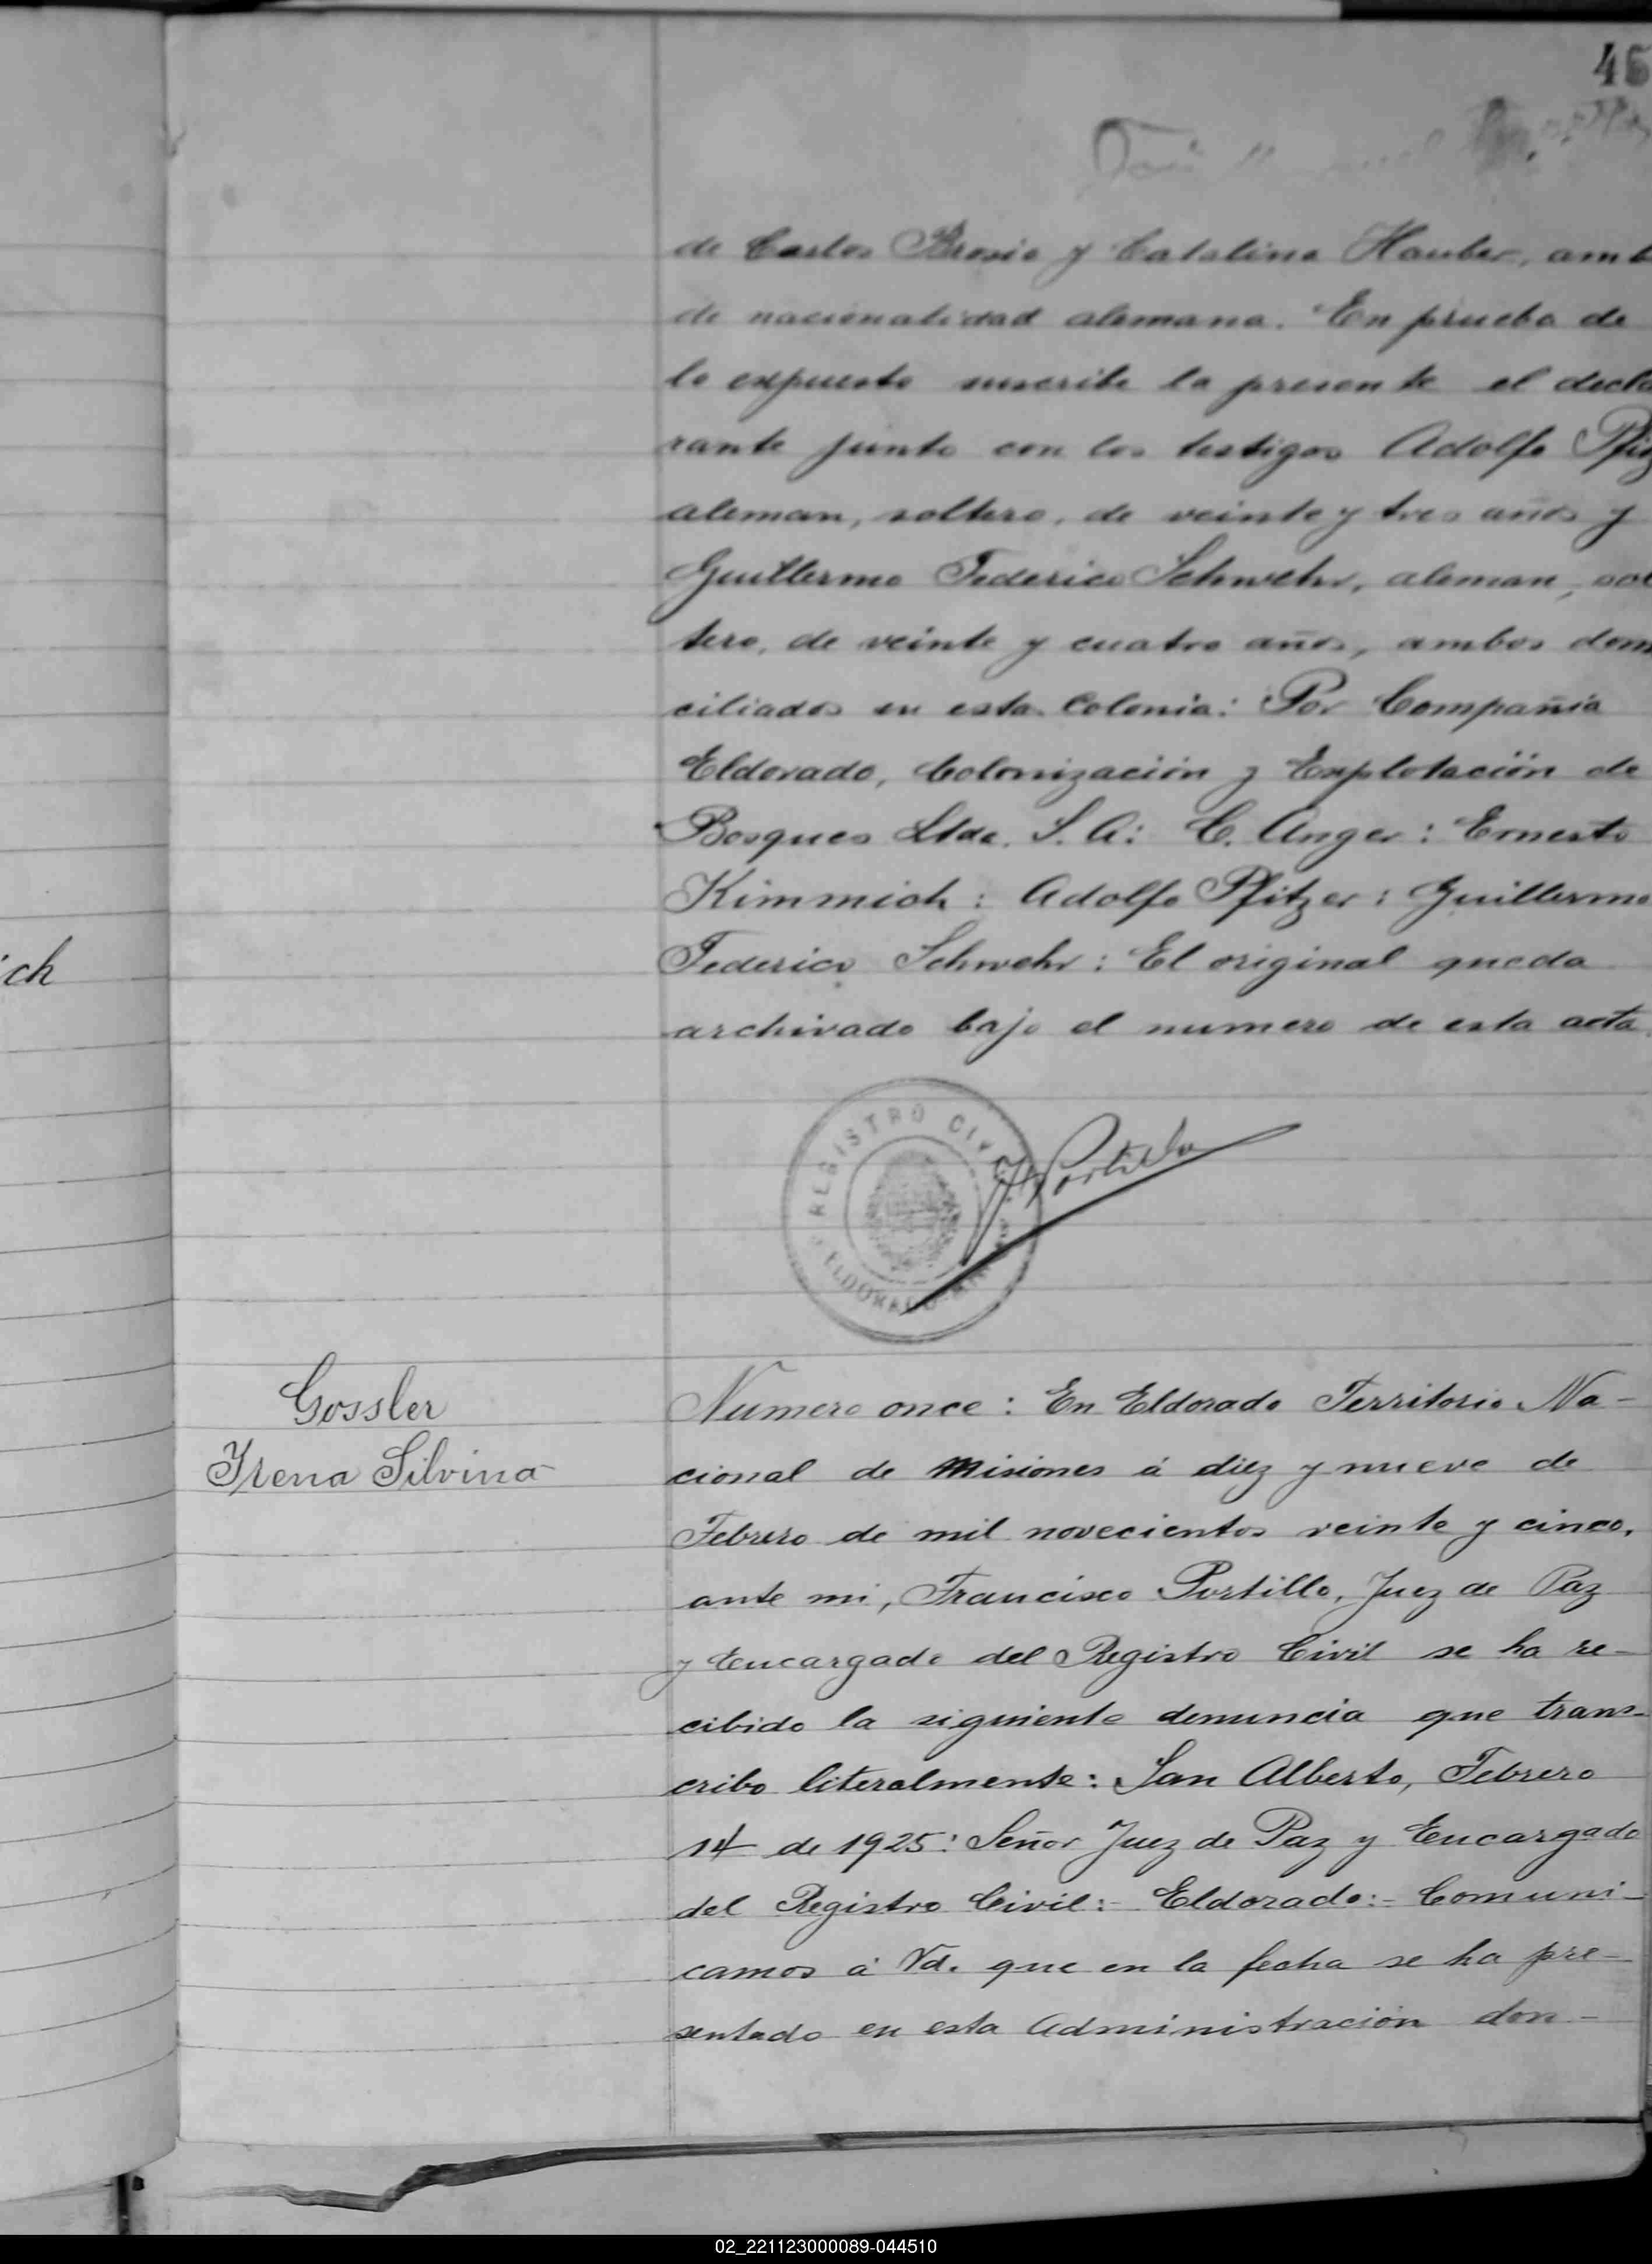 46
de Carlos Brosie y Catalina Hauber, amb
de nacionalidad alemana. En prueba de
lo expuesto suscribe la presente el decla
rante junto con los testigos Adolfo Pfitz
aleman, soltero, de veinte y tres años y
Guillermo Federico Schwehr, aleman, sol
tero, de veinte y cuatro años, ambos domi
ciliados en esta Colonia: Por Compañia
Eldorado, Colonización y Explotación de
Bosques Ltda. S. A: C. Anger: Ernesto
Kimmich: Adolfo Pfitzer: Guillermo
ich
Federico Schwehr: El original queda
archivado bajo el numero de esta acta.
REGISTRO CIVIL
ELDORADO
F Portillo
Gossler
Yrena Silvina
Numero once: En Eldorado Territorio Na-
cional de Misiones á diez y nueve de
Febrero de mil novecientos veinte y cinco,
ante mi, Francisco Portillo, Juez de Paz
y Encargado del Registro Civil se ha re-
cibido la siguiente denuncia que trans-
cribo literalmente: San Alberto, Febrero
14 de 1925: Señor Juez de Paz y Encargado
del Registro Civil:- Eldorado:- Comuni-
camos á Vd. que en la fecha se ha pre-
sentado en esta Administración don-
02_221123000089-044510